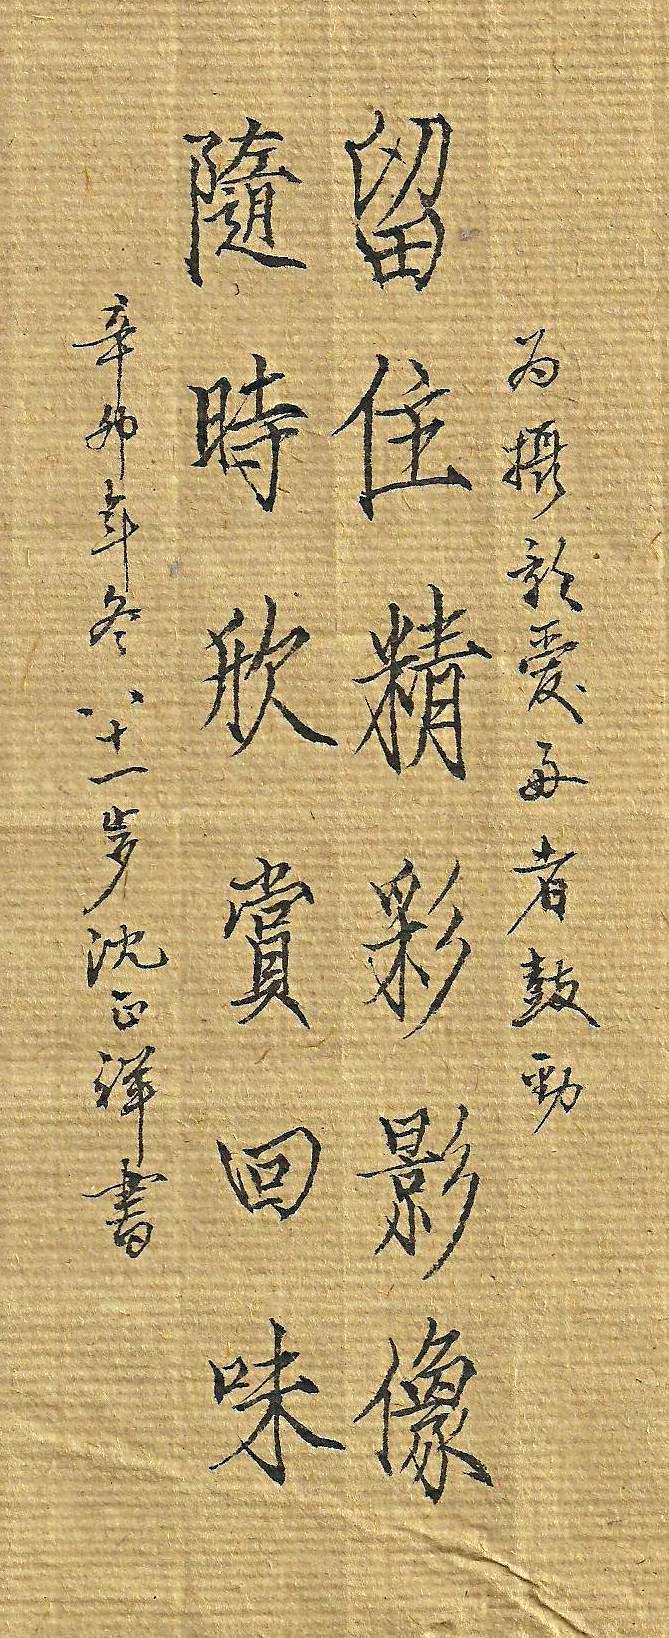 为攝影爱好者鼓勁
留住精彩影像
隨時欣賞回味
辛卯年冬八十一岁沈正祥書